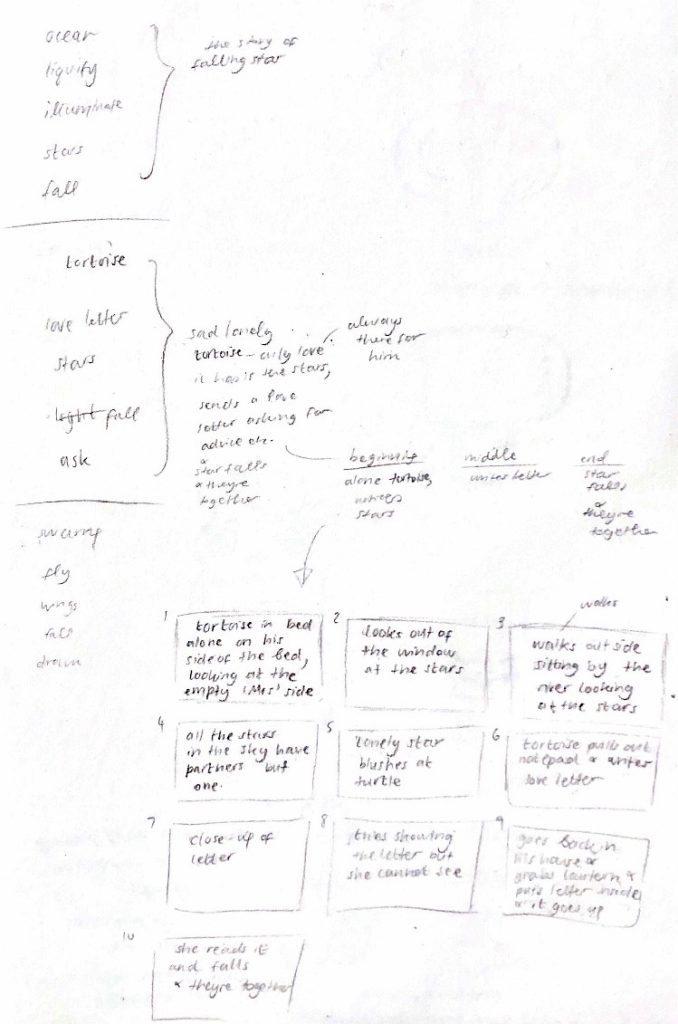 ocean
liquify
illuminate
stars
fall
the story of
falling star
tortoise
love letter
stars
light fall
ask
sad lonely
tortoise - only love
it has is the stars,
sends a love
letter asking for
advice etc.
&
star falls
& they're
together
always
there for
him
beginning
alone tortoise,
notices
stars
middle
writes letter
end
star
falls
&
they're
together
swarm
fly
wings
fall
drown
1
tortoise in bed
alone on his
side of the bed,
looking at the
empty 'Mrs' side
2
looks out of
the window
at the stars
3
walks
walks outside
sitting by the
river looking
at the stars
4
all the stars
in the sky have
partners but
one.
5
lonely star
blushes at
turtle
6
tortoise pulls out
notepad & writes
love letter
7
close-up of
letter
8
tries showing
the letter but
she cannot see
9
goes back in
his house &
grabs lantern &
puts letter inside
& it goes up
10
she reads it
and falls
& they're together